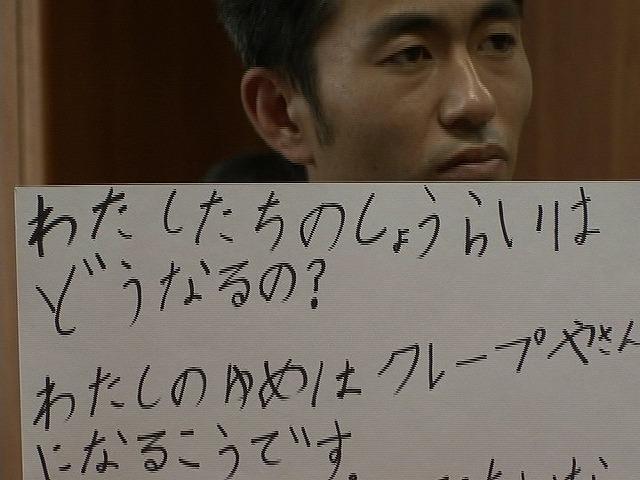 わたしたちのしょうらいは
どうなるの?
わたしのゆめはクレープやさん
になるこうです。